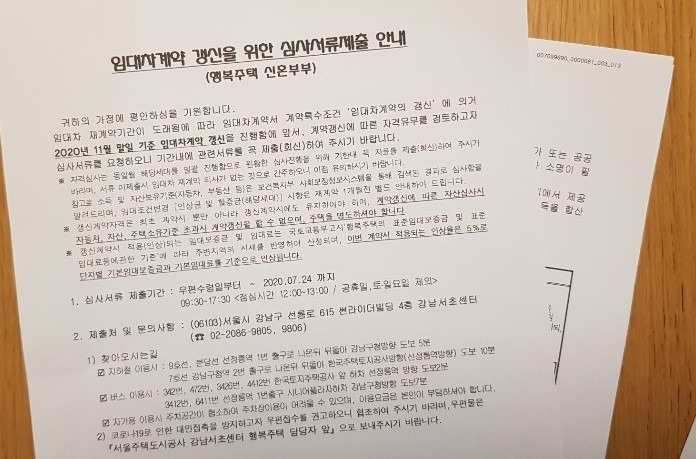 임대차계약 갱신을 위한 심사서류제출 안내
(행복주택 신혼부부)
귀하의 가정에 평안하심을 기원합니다.
임대차 재계약기간이 도래됨에 따라 임대차계약서 계약특수조건 '임대차계약의 갱신' 에 의거
2020년 11월 말일 기준 임대차계약 갱신을 진행함에 앞서, 계약갱신에 따른 자격유무를 검토하고자
심사서류를 요청하오니 기간내에 관련서류를 꼭 제출(회신)하여 주시기 바랍니다.
※ 자격심사는 동일월 해당세대를 일괄 진행함으로 원활한 심사진행을 위해 기한내 꼭 자료를 제출(회신)하여 주시기
바라며, 서류 미제출시 임대차 재계약 의사가 없는 것으로 간주하오니 이점 유의하시기 바랍니다.
참고로 소득 및 자산보유기준(자동차, 부동산 등)은 보건복지부 사회보장정보시스템을 통해 검색된 결과로 심사함을
알려드리며, 임대조건변경 [인상금 및 할증금(해당세대)] 사항은 재계약 1개월전 별도 안내하여 드립니다.
※ 갱신계약자격은 최초 계약시 뿐만 아니라 갱신계약시에도 유지하여야 하며, 계약갱신에 따른 자산심사시
자동차, 자산, 주택소유기준 초과시 계약갱신을 할 수 없으며, 주택을 명도하셔야 합니다.
※ 갱신계약시 적용(인상)되는 임대보증금 및 임대료는 국토교통부고시'행복주택의 표준임대보증금 및 표준
임대료등에관한 기준'에 따라 주변지역의 시세를 반영하여 산정되며, 이번 계약시 적용되는 인상율은 5%로
단지별 기본임대보증금과 기본임대료를 기준으로 인상됩니다.
1. 심사서류 제출기간 : 우편수령일부터 ~ 2020.07.24 까지
09:30-17:30 <점심시간 12:00-13:00 / 공휴일,토일요일 제외>
2. 제출처 및 문의사항 : (06103)서울시 강남구 선릉로 615 썬라이더빌딩 4층 강남서초센터
(☎ 02-2086-9805, 9806)
1) 찾아오시는길
☑ 지하철 이용시 : 9호선, 분당선 선정릉역 1번 출구로 나온뒤 뒤돌아 강남구청방향 도보 5분
7호선 강남구청역 2번 출구로 나온뒤 뒤돌아 한국주택토지공사방향(선정릉역방향) 도보 10분
☑ 버스 이용시 : 342번, 472번, 3426번, 4412번 한국토지주택공사 앞 하차 선정릉역 방향 도보2분
3412번, 6411번 선정릉역 1번출구 시니어플라자하차 강남구청방향 도보7분
☑ 자가용 이용시 주차공간이 협소하여 주차장이용이 어려울 수 있으며, 이용요금은 본인이 부담하셔야 합니다.
2) 코로나19로 인한 대민접촉을 방지하고자 우편접수를 권고하오니 협조하여 주시기 바라며, 우편물은
『서울주택도시공사 강남서초센터 행복주택 담당자 앞』으로 보내주시기 바랍니다.
007099690_0000081_003_013
가 또는 공공
소명이 필
에서 제공
목을 합산